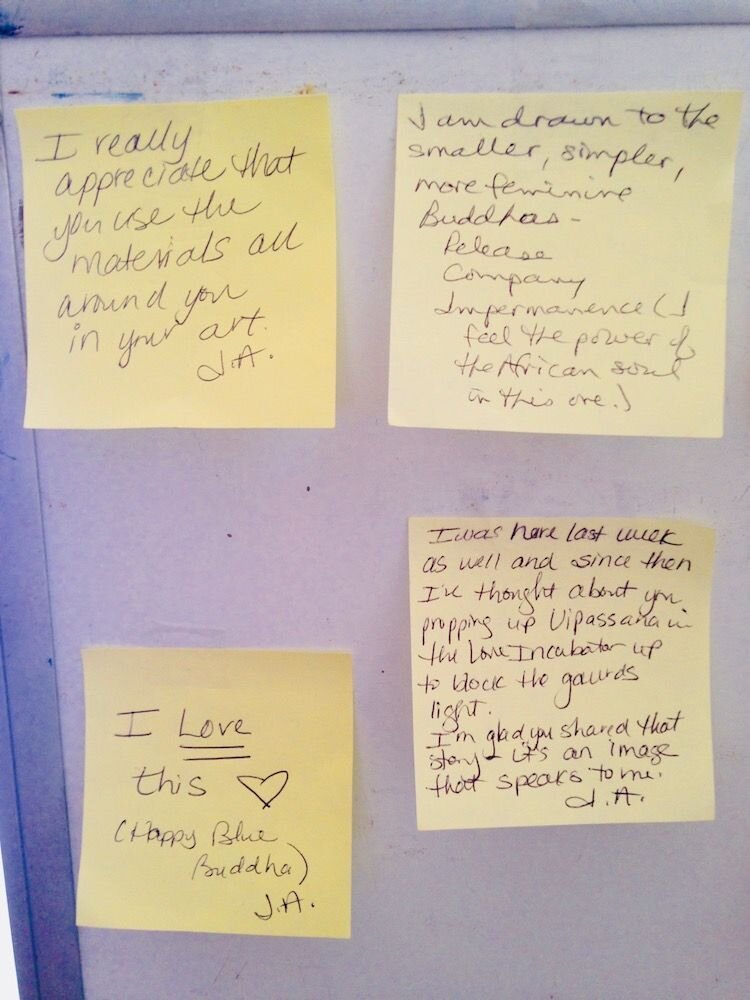 I really
appreciate that
you use the
materials all
around you
in your art.
J.A.
I am drawn to the
smaller, simpler,
more feminine
Buddhas -
Release
Company
Impermanence (I
feel the power of
the African soul
in this one.)
I was here last week
as well and since then
I've thought about you
propping up Vipassana in
the Love Incubator up
to block the gaurds
light.
I'm glad you shared that
story - it's an image
that speaks to me.
J.A.
I Love
this ♡
(Happy Blue
Buddha)
J.A.